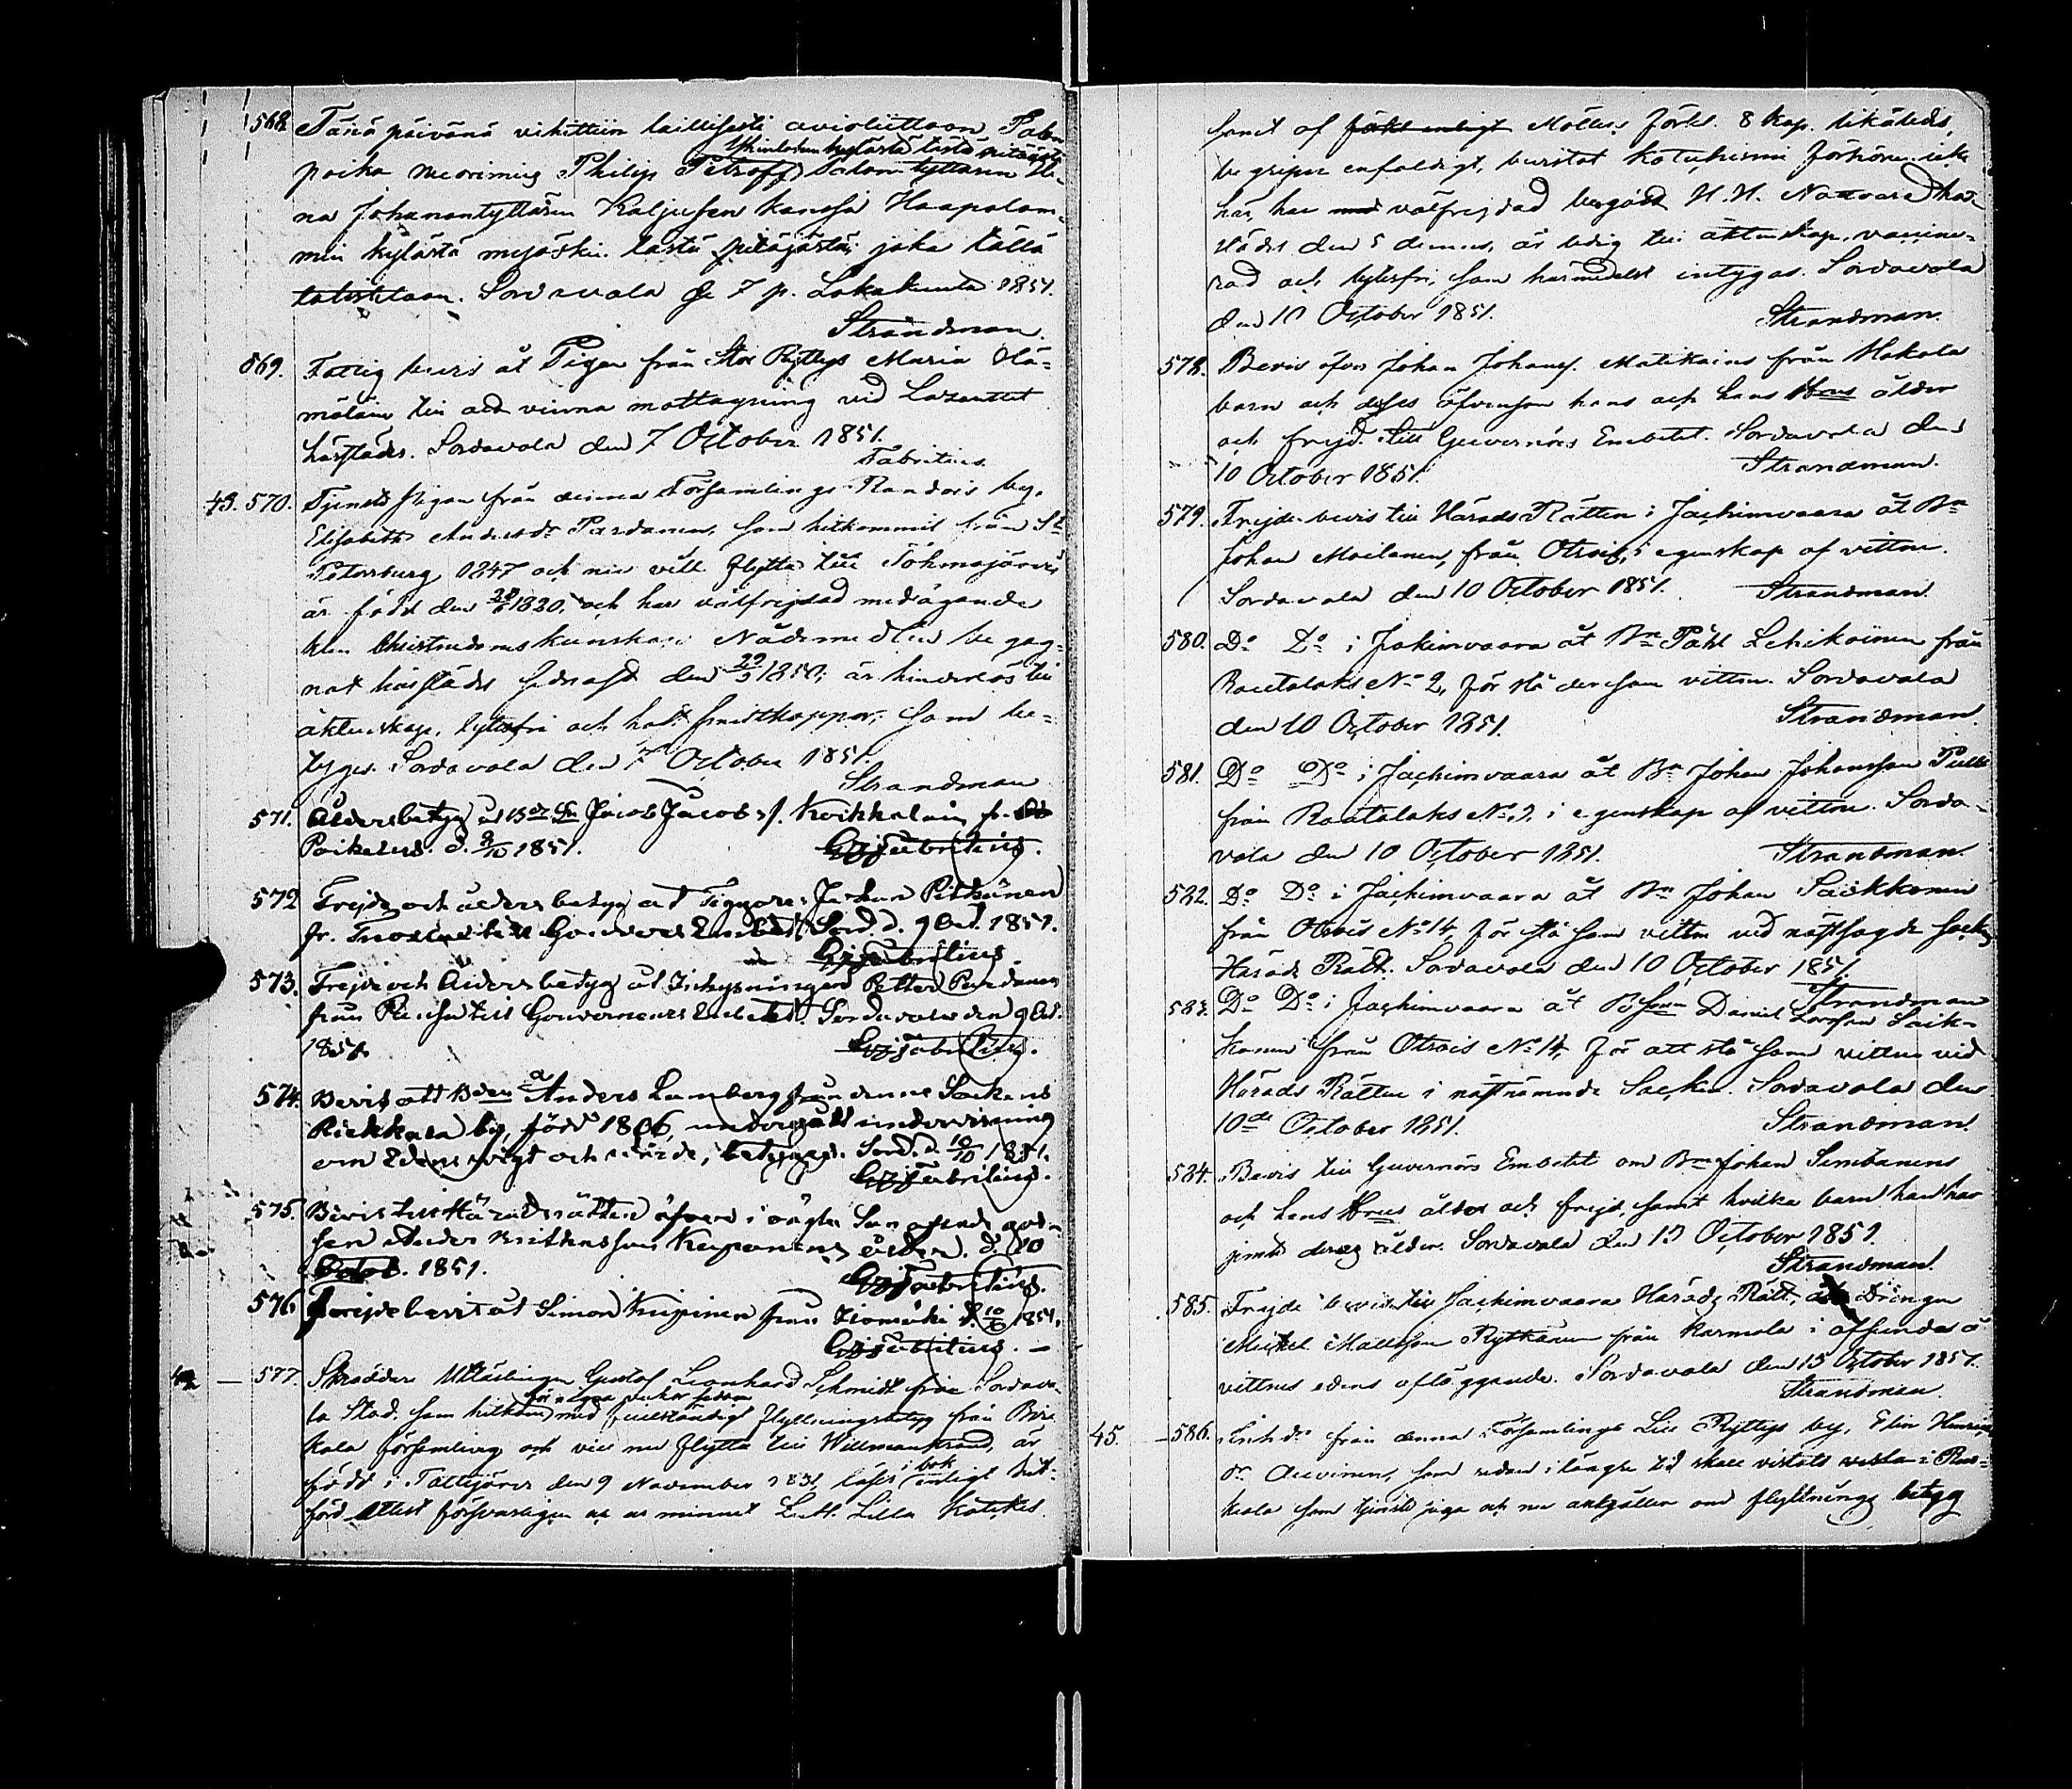 568. Tänä päivänä vihittiin laillisesti avioliittoon Talon
Yhinlahen kylästä tästä pitäjästä
poika nuorimies Philip Petroff Talon tyttären He-
na Johanantyttären Kaljusen kanssa Haapalam-
min kylästä myöskin tästä pitäjästä, joka tällä
todistetaan. Sordavala se 7 p. Lokakuuta 1851.
Strandman.
569. Fattig bevis åt Pigan från Stor Ryttys Maria Hä-
mäläin till att vinna mottagning vid Lazarettet
härstädes. Sordavala den 7 October 1851.
Fabritius.
43. 570. Tjenste pigan från denna Församlings Randois by,
Elisabeth Andersdr Pardanen, som hitkommit från St
Petersburg 1847 och nu vill flytta till Tohmajärvi
är född den 1820, och har välfrejdad medågande
klen Christendomskunskap; Nådemedlen begag-
nat härstädes sednast den 1850; är hinderlös till
äktenskap, lytesfri och haft smittkoppor; som be-
tyges. Sordavala den 7 October 1851.
Strandman
571. Åldersbetyg åt Jacob Jacobs s. Koikkalain fr.
d. 9/10 1851. GgFabritius.
572 Frejde och åldersbetyg åt Johan Pitkänen
fr. till Gouverns Embetet. Sord. d. 9 Oct. 1851.
GgFabritius.
573. Frejde och Åldersbetyg åt Inhysningen Petter Pardanen
från till Gouverneurs Embetet. Sordavala den 9 Oct.
1851. GgFabritius.
574. Bevis att Bden Anders Lunberg från denna Sockens
Riekkala by, född 1806, undergått undervisning
om Edens vigt och värde, betygas. Sord. d. 10/10 1851.
GgFabritius.
575. Bevis till Häradsrätten öfver
Kuponens ålder. d. 10
Octob. 1851. GgFabritius.
576 Frejdebevis åt Simon Kupinen från d. 10/10 1851.
GgFabritius. —
— 577. Skräddare Utläringen Gustaf Leonhard Schmidt från Sordava-
för några veckor sedan
la Stad. som hitkom med fullständigt flyttningsbetyg från
kala församling och vill nu flytta till Willmanstrand, är
i bok
född i den 9 November 1831, läser enligt hit-
förd Attest försvarligen ur minnet Luth. Lilla Katekes.
samt af Möllers förkl. 8 kap. likaleds,
begriper enfaldigt, bevistat Katechismi förhören icke
här, har välfrejdad begått H. H. Nattvard här-
städes den 5 dennes, är ledig till äktenskap, vaccine-
rad och lytesfri, som härmedelst intygas. Sordavala
den 10 October 1851. Strandman.
578. Bevis öfver Johan Johanss. Matikains från Hakala
barn och dess äfvensom hans och hans Hrus ålder
och frejd. till Guvernörs Embetet. Sordavala den
10 October 1851. Strandman.
579. Frejde-bevis till Härads Rätten i Jachimvaara åt Bn
Johan Moilanen, från Otrois, i egenskap af vittne.
Sordavala den 10 October 1851. Strandman.
580. Do Do i Jakimvaara åt Bn Påhl Lehikoinen från
Rautalaks No 2, för stå der som vittne. Sordavala
den 10 October 1851. Strandman.
581. Do Do i Jachimvaara åt Bn Johan Johansson Pulli
från Rautalaks No 2, i egenskap af vittne. Sorda-
vala den 10 October 1851. Strandman.
582. Do Do i Jachimvaara åt Bn Johan Saikkonen
från Otrois No 14, för stå som vittne vid nästsagde Socken
Härads Rätt. Sordavala den 10 October 1851.
Strandman
583. Do Do i Jachimvaara åt BSon Daniel Larsson Saik-
konen från Otrois No 14, för att stå som vittne vid
Härads Rätten i nästnämnde Socken. Sordavala den
10de October 1851. Strandman.
584. Bevis till Guvernörs Embetet om Bn Johan Simbanens
och hans Hrus ålder och frejd, samt hvilka barn han har
jemte deras ålder. Sordavala den 13 October 1851.
Strandman.
585. Frejde bevis till Jachimvaara Härads Rätt, åt Drängen
Michel Mattsson Rytkönen från Karmala i afseende å
vittnes edens afläggande. Sordavala den 13 October 1851.
Strandman.
45. — 586. Inh.dr från denna Församlings Lill Ryttys by, Elin Henrics
dr Auvinen, som redan i längre tid skall vistats vistas i Rus-
keala som tjenste piga och nu anhåller om flyttnings betyg